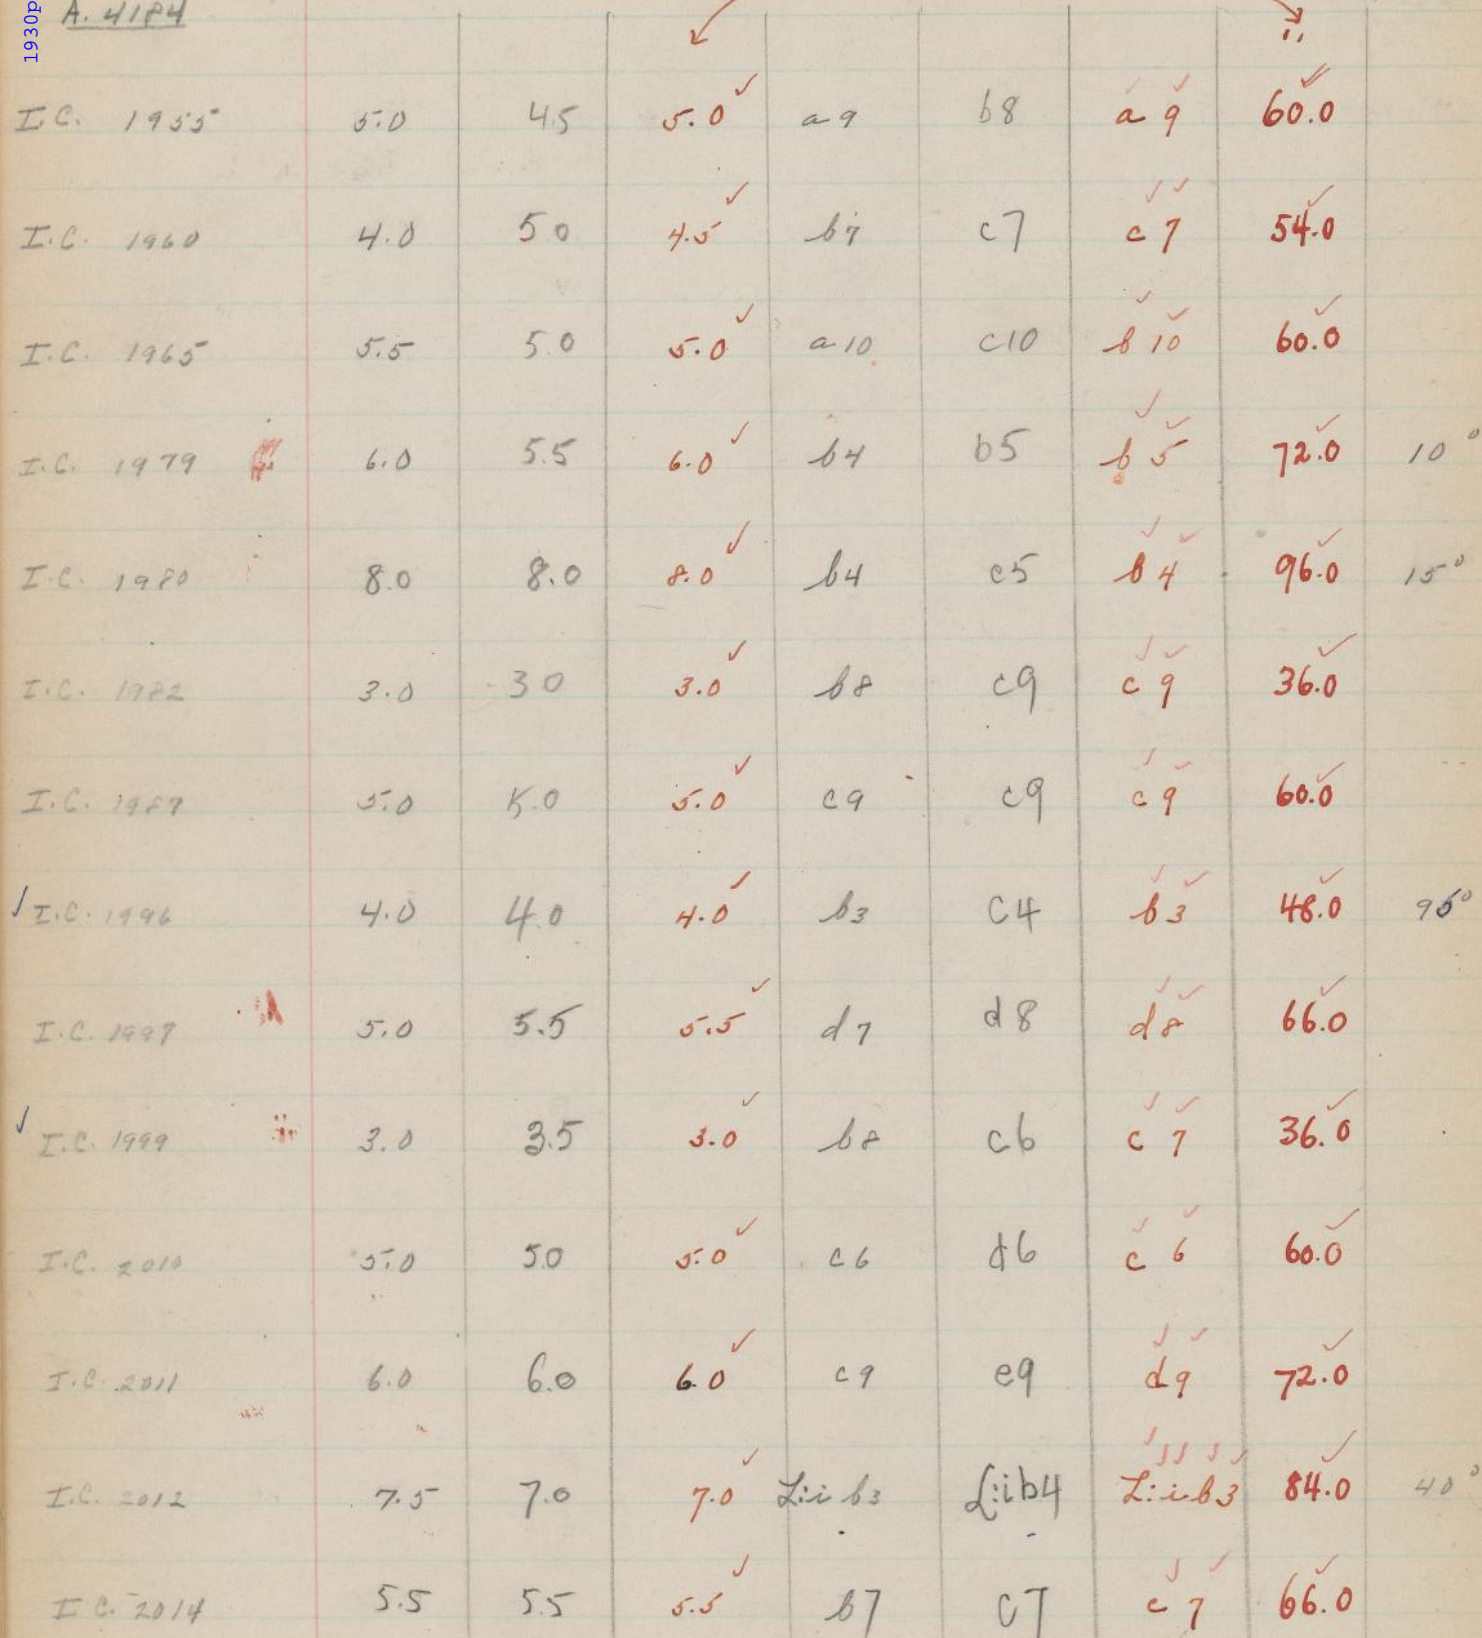 1930p
A. 4184
I.C. 1955 5.0 4.5 5.0 ✓ a9 b8 a9 60.0
I.C. 1960 4.0 50 4.5 ✓ b7 c7 c7 54.0
I.C. 1965 5.5 5.0 5.0 ✓ a10 c10 b10 60.0
I.C. 1979 6.0 5.5 6.0 ✓ b4 b5 b5 72.0 10°
I.C. 1980 8.0 8.0 8.0 ✓ b4 c5 b4 96.0 15°
I.C. 1982 3.0 30 3.0 ✓ b8 c9 c9 36.0
I.C. 5.0 5.0 5.0 ✓ c9 c9 c9 60.0
✓ I.C. 1996 4.0 4.0 4.0 ✓ b3 c4 b3 48.0 95°
I.C. 1997 5.0 5.5 5.5 ✓ d7 d8 d8 66.0
✓ I.C. 1999 3.0 3.5 3.0 ✓ b8 c6 c7 36.0
I.C. 2010 5.0 50 5.0 ✓ c6 d6 c6 60.0
I.C. 2011 6.0 6.0 6.0 ✓ c9 e9 d9 72.0
I.C. 2012 7.5 7.0 7.0 ✓ L:i b3 L:ib4 L:ib3 84.0 40°
I C. 2014 5.5 5.5 5.5 ✓ b7 c7 c7 66.0